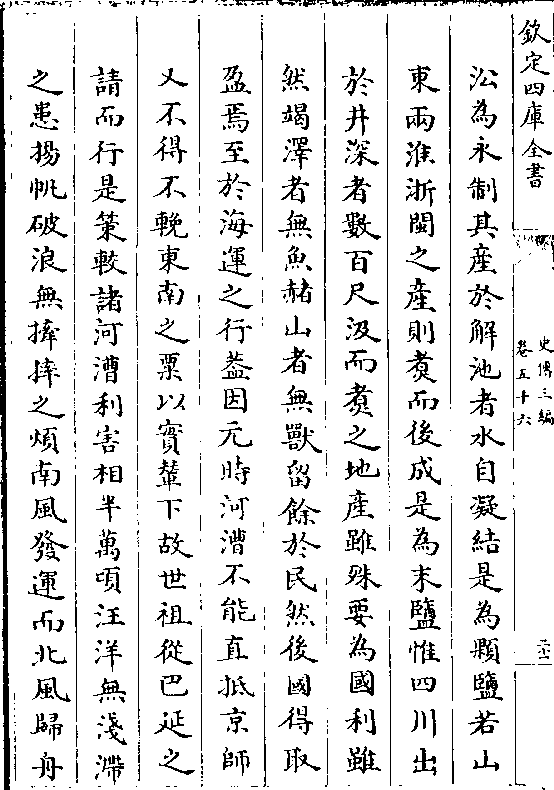 欽定四庫全書
史傳三編
卷五十六
㳂為永制其産於解池者水自凝結是為顆鹽若山
東兩淮浙閩之産則煑而後成是為末鹽惟四川出
於井深者數百尺汲而煑之地産雖殊要為國利雖
然竭澤者無魚赭山者無獸留餘於民然後國得取
盈焉至於海運之行葢因元時河漕不能直抵京師
又不得不輓東南之粟以實輦下故世祖從巴延之
請而行是策較諸河漕利害相半萬頃汪洋無淺滯
之患揚帆破浪無摔捽之煩南風發運而北風歸舟